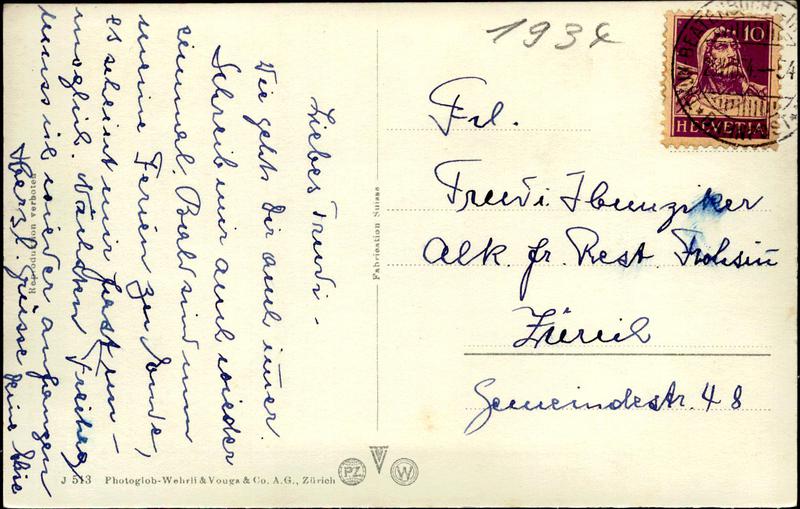 1934
10
HELVETIA
Liebes Trudi -
Wie gehts Dir auch immer.
Schreib mir auch wieder
einmal. Bald sind nun
meine Ferien zu Ende,
es scheint mir fast un-
möglich. Nächsten Freitag
muss ich wieder anfangen
Herzl. Grüsse Deine
Frl.
Trudi Hunziker
Alk. fr. Rest Frohsin
Zürich
Gemeindestr. 48
Fabrication Suisse
Reproduction verboten
J 513 Photoglob-Wehrli & Vouga & Co. A.G., Zürich
PZ
W